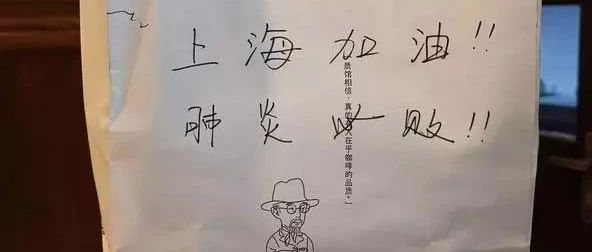 上海加油!!
肺炎必败!!
质馆相信，真的人在乎咖啡的品质。」